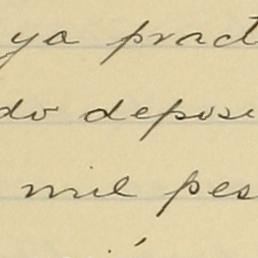 ya pract
do depose
mil pes